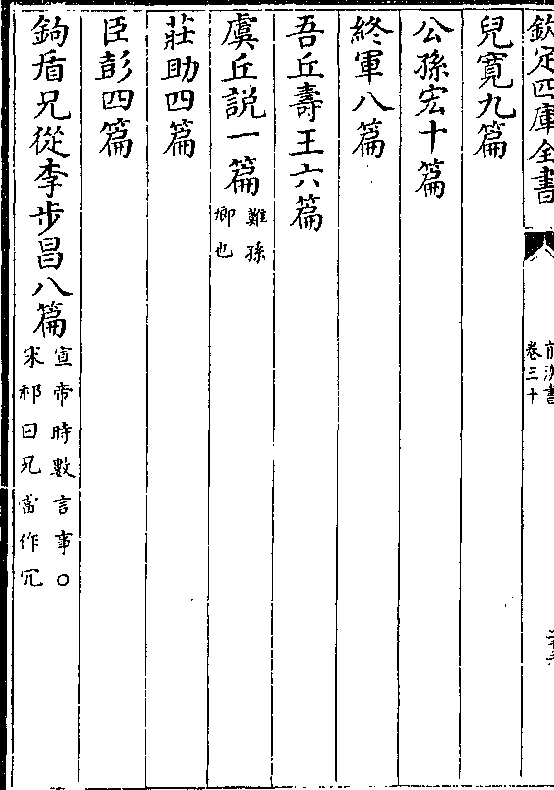 欽定四庫全書
前漢書
卷三十
兒寛九篇
公孫宏十篇
終軍八篇
吾丘壽王六篇
虞丘説一篇
難孫
卿也
莊助四篇
臣彭四篇
鉤盾兄從李步昌八篇
宣帝時數言事○
宋祁曰兄當作冗